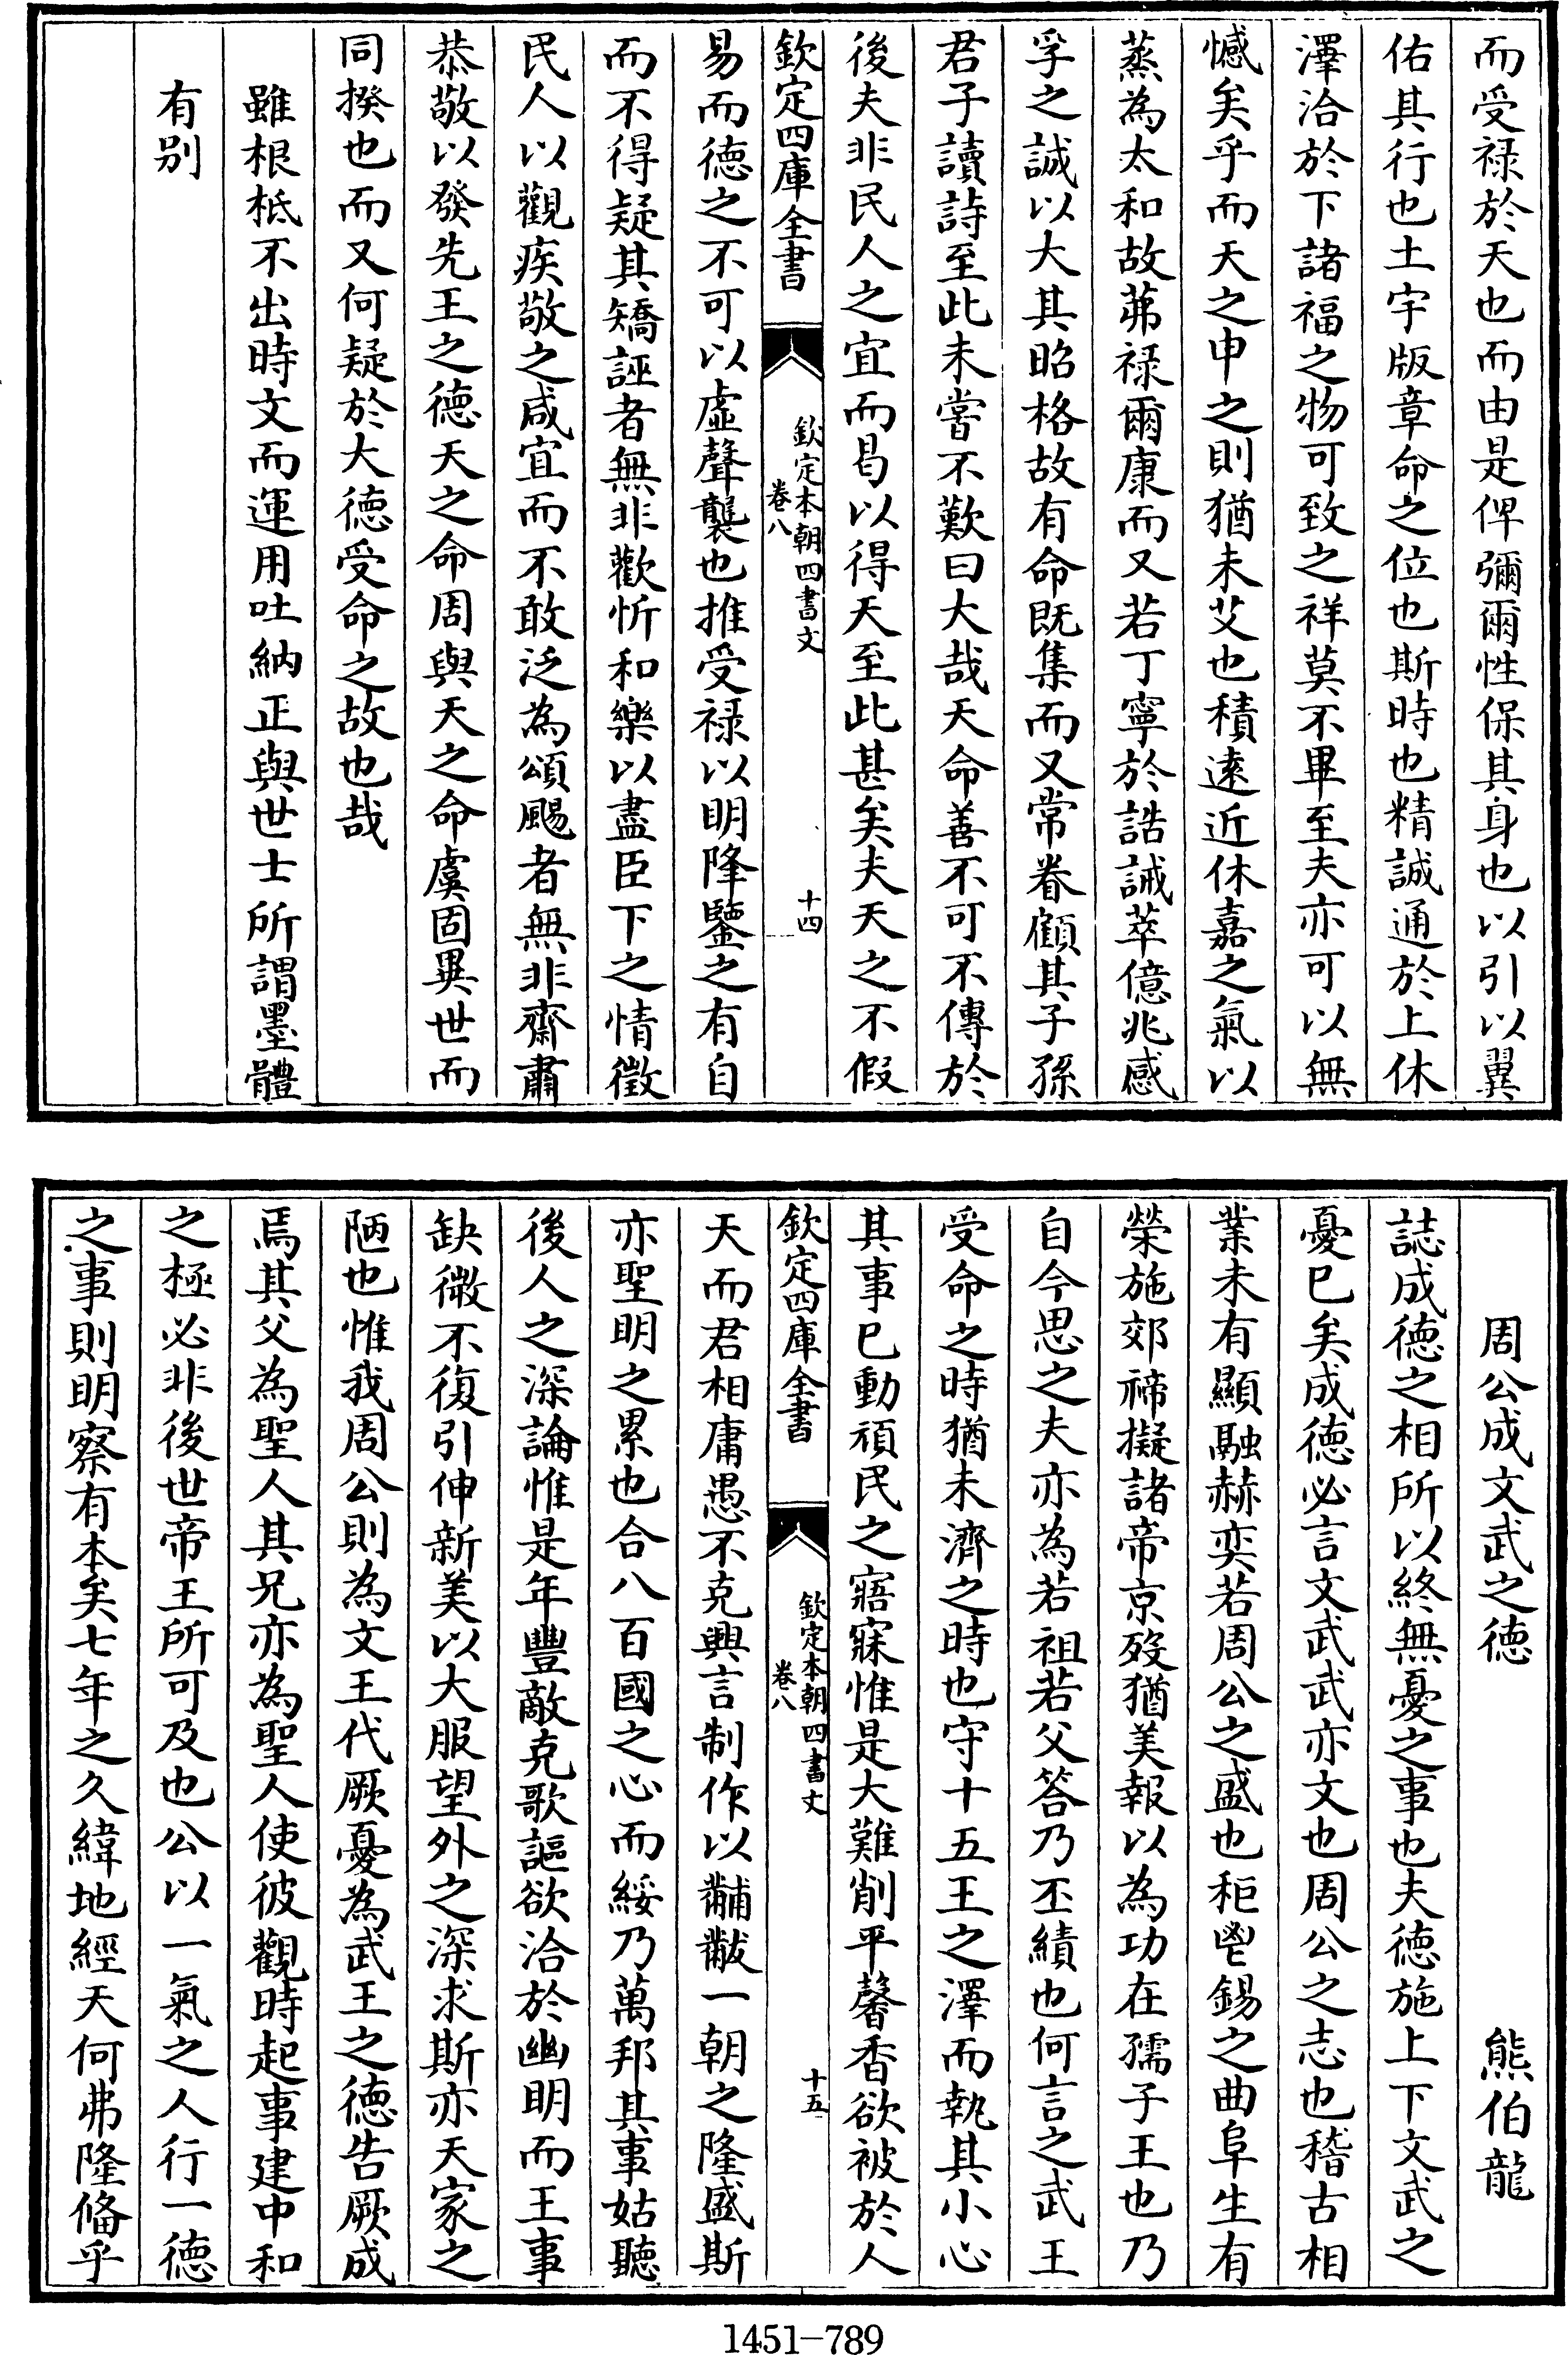 而受禄於天也而由是俾彌爾性保其身也以引以翼
佑其行也土宇版章命之位也斯時也精誠通於上休
澤洽於下諸福之物可致之祥莫不畢至夫亦可以無
憾矣乎而天之申之則猶未艾也積遠近休嘉之氣以
蒸為太和故茀禄爾康而又若丁寧於誥誡萃億兆感
孚之誠以大其昭格故有命既集而又常眷顧其子孫
君子讀詩至此未嘗不歎曰大哉天命善不可不傳於
後夫非民人之宜而曷以得天至此甚矣夫天之不假
欽定四庫全書
欽定本朝四書文
卷八
十四
易而德之不可以虛聲襲也推受禄以明降鑒之有自
而不得疑其矯誣者無非歡忻和樂以盡臣下之情徵
民人以觀疾敬之咸宜而不敢泛為頌颺者無非齋肅
恭敬以發先王之德天之命周與天之命虞固異世而
同揆也而又何疑於大德受命之故也哉
雖根柢不出時文而運用吐納正與世士所謂墨體
有别
周公成文武之德
熊伯龍
誌成德之相所以終無憂之事也夫德施上下文武之
憂已矣成德必言文武武亦文也周公之志也稽古相
業未有顯融赫奕若周公之盛也秬鬯錫之曲阜生有
榮施郊禘擬諸帝京歿猶美報以為功在孺子王也乃
自今思之夫亦為若祖若父答乃丕績也何言之武王
受命之時猶未濟之時也守十五王之澤而執其小心
其事已動頑民之寤寐惟是大難削平馨香欲被於人
欽定四庫全書
欽定本朝四書文
卷八
十五
天而君相庸愚不克興言制作以黼黻一朝之隆盛斯
亦聖明之累也合八百國之心而綏乃萬邦其事姑聽
後人之深論惟是年豐敵克歌謳欲洽於幽明而王事
缺微不復引伸新美以大服望外之深求斯亦天家之
陋也惟我周公則為文王代厥憂為武王之德告厥成
焉其父為聖人其兄亦為聖人使彼觀時起事建中和
之極必非後世帝王所可及也公以一氣之人行一德
之事則明察有本矣七年之久緯地經天何弗隆備乎
1451-789